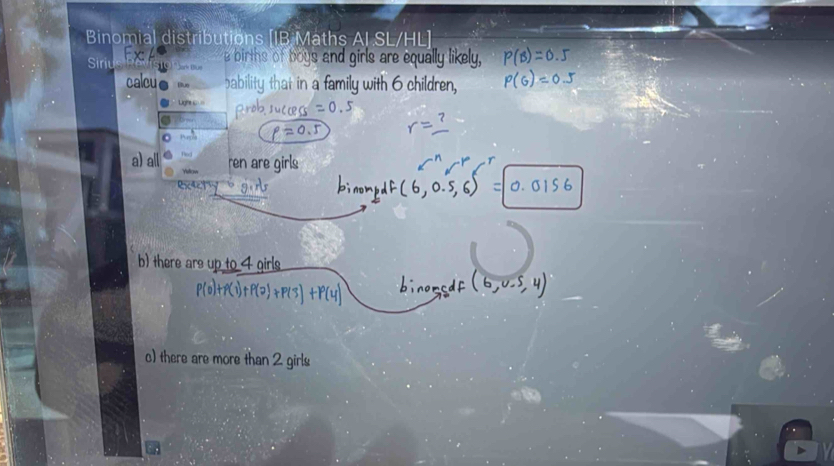 Binomial distributions [IB Maths AI SL/HL]
births of boys and girls are equally likely, P(B)=0.5
calcu ability that in a family with 6 children, P(G)=0.5
prob. success = 0.5
p=0.5 r=?
a) all ren are girls
n p r
exactly 6 girls binompdf(6, 0.5, 6) = 0.0156
b) there are up to 4 girls
P(0)+P(1)+P(2)+P(3)+P(4) binomcdf(6, 0.5, 4)
c) there are more than 2 girls
Blue
Light Blue
Purple
Red
Yellow